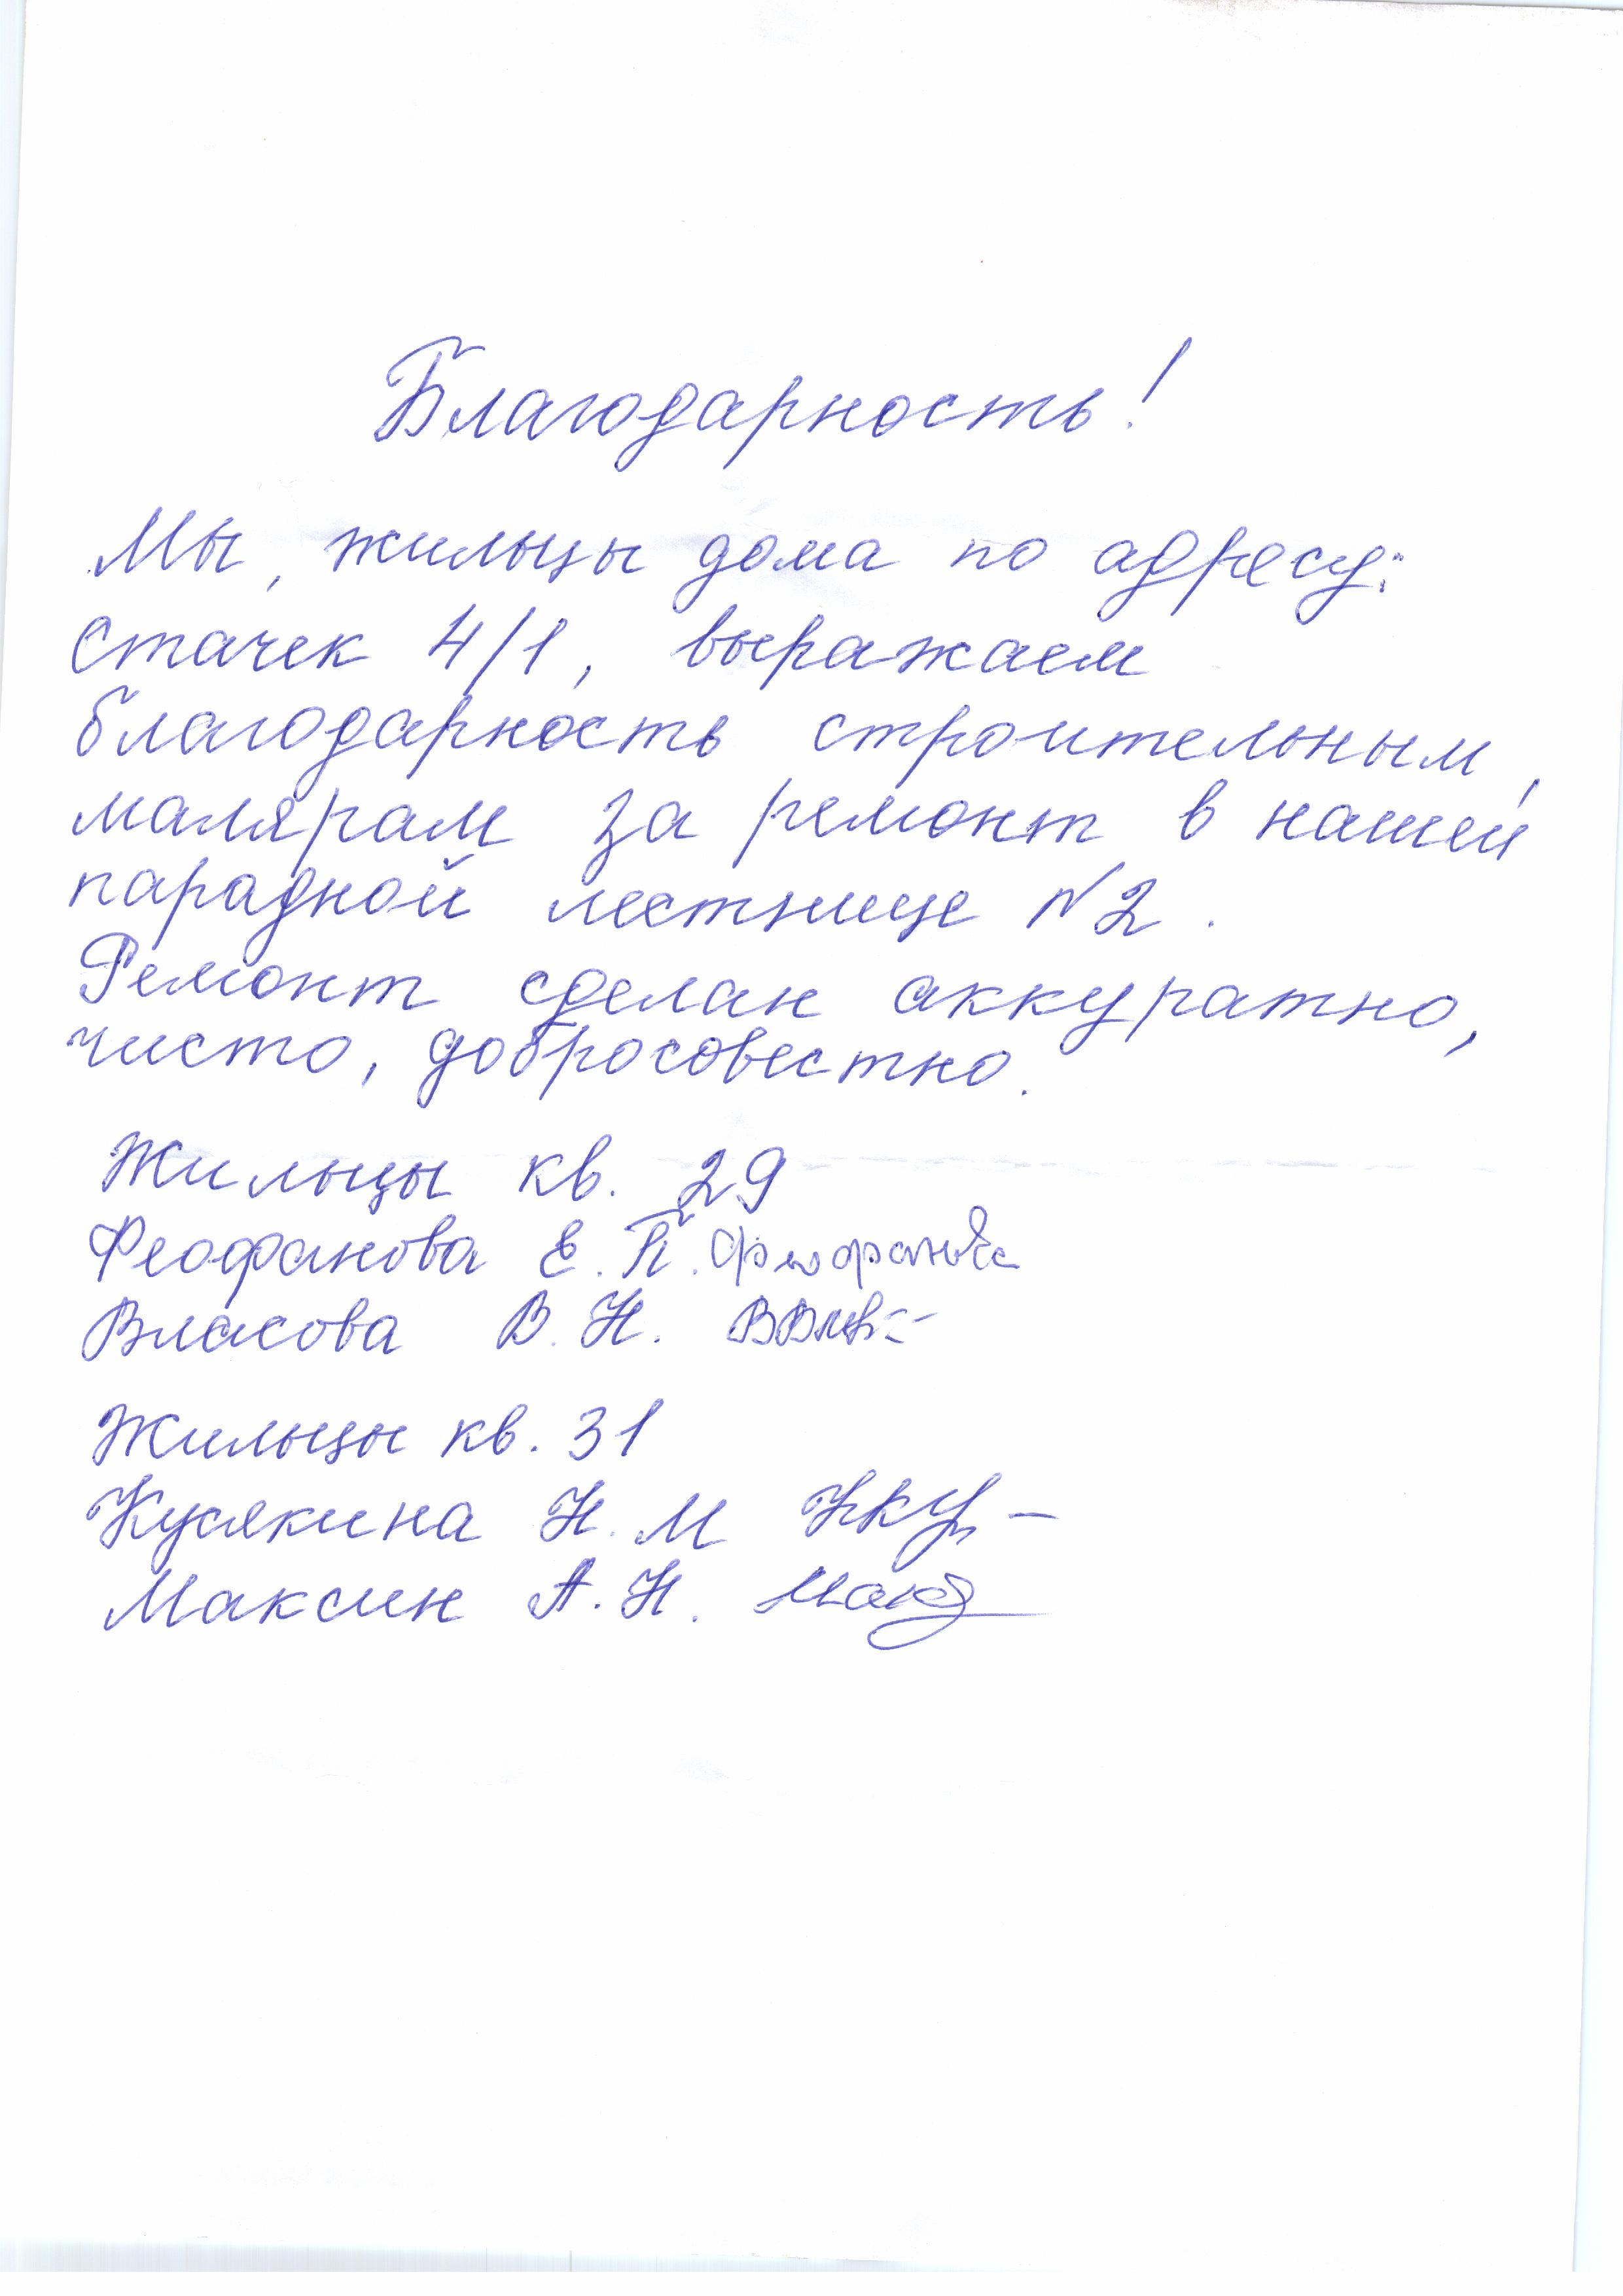 Благодарность!
Мы, жильцы дома по адресу:
Стачек 4/1, выражаем
благодарность строительным,
малярам за ремонт в нашей
парадной лестнице №2.
Ремонт сделан аккуратно,
чисто, добросовестно.
Жильцы кв. 29
Феофанова Е. П. Феофанова
Власова В. Н.
Жильцы кв. 31
Кусякина Н. М
Максин А. Н.